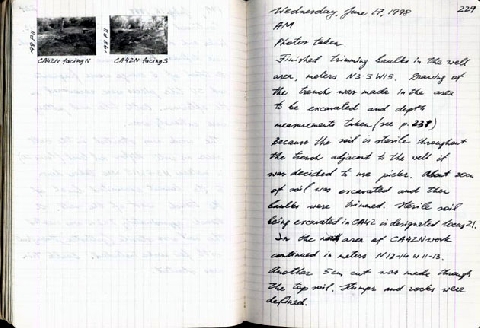 CA42N facing N
CA42N facing S
Wednesday, June 17, 1998
229
AM
Photos taken
Finished trimming baulks in the weld
area, meters N3 3 W15. Drawing of
the trench was made in the area
to be excavated and depth
measurements taken (see p. 238)
Because the soil is sterile throughout
the trench adjacent to the weld it
was decided to use picks. About 20cm
of soil was excavated and then
baulks were trimmed. Sterile soil
being excavated in CA42 is designated
In the north area of CA42N work
continued in meters N12-14 W11-13.
Another 5cm cut was made through
the top soil. Plumps and rocks were
defined.